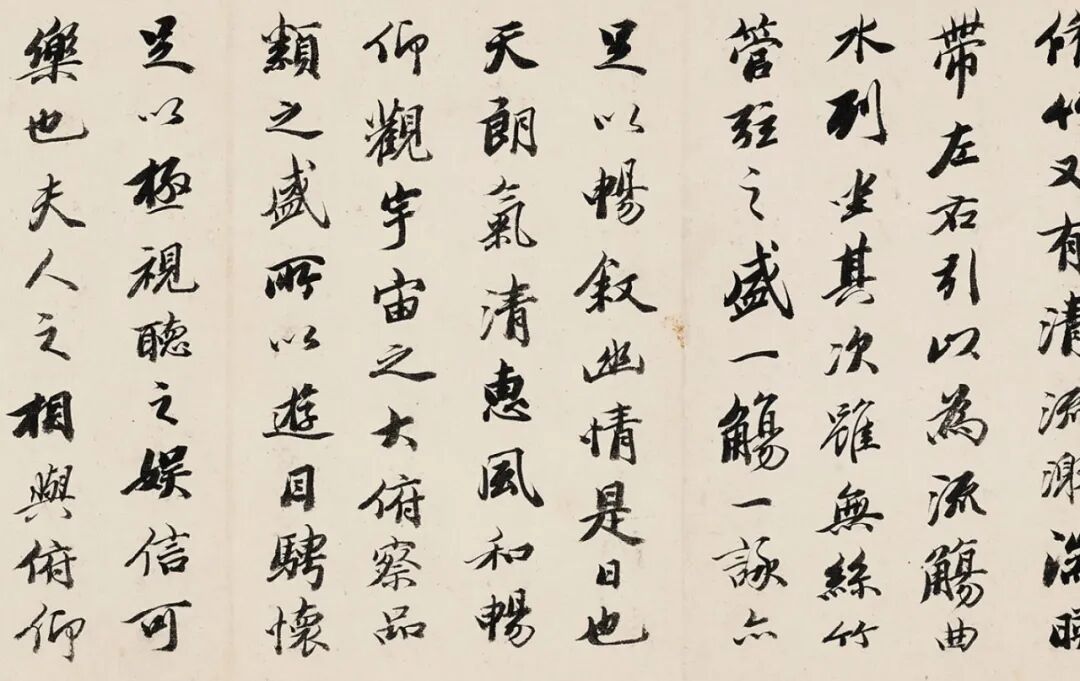 脩竹又有清流激湍映
帶左右引以為流觴曲
水列坐其次雖無絲竹
管弦之盛一觴一詠亦
足以暢敘幽情是日也
天朗氣清惠風和暢
仰觀宇宙之大俯察品
類之盛所以遊目騁懷
足以極視聽之娛信可
樂也夫人之相與俯仰